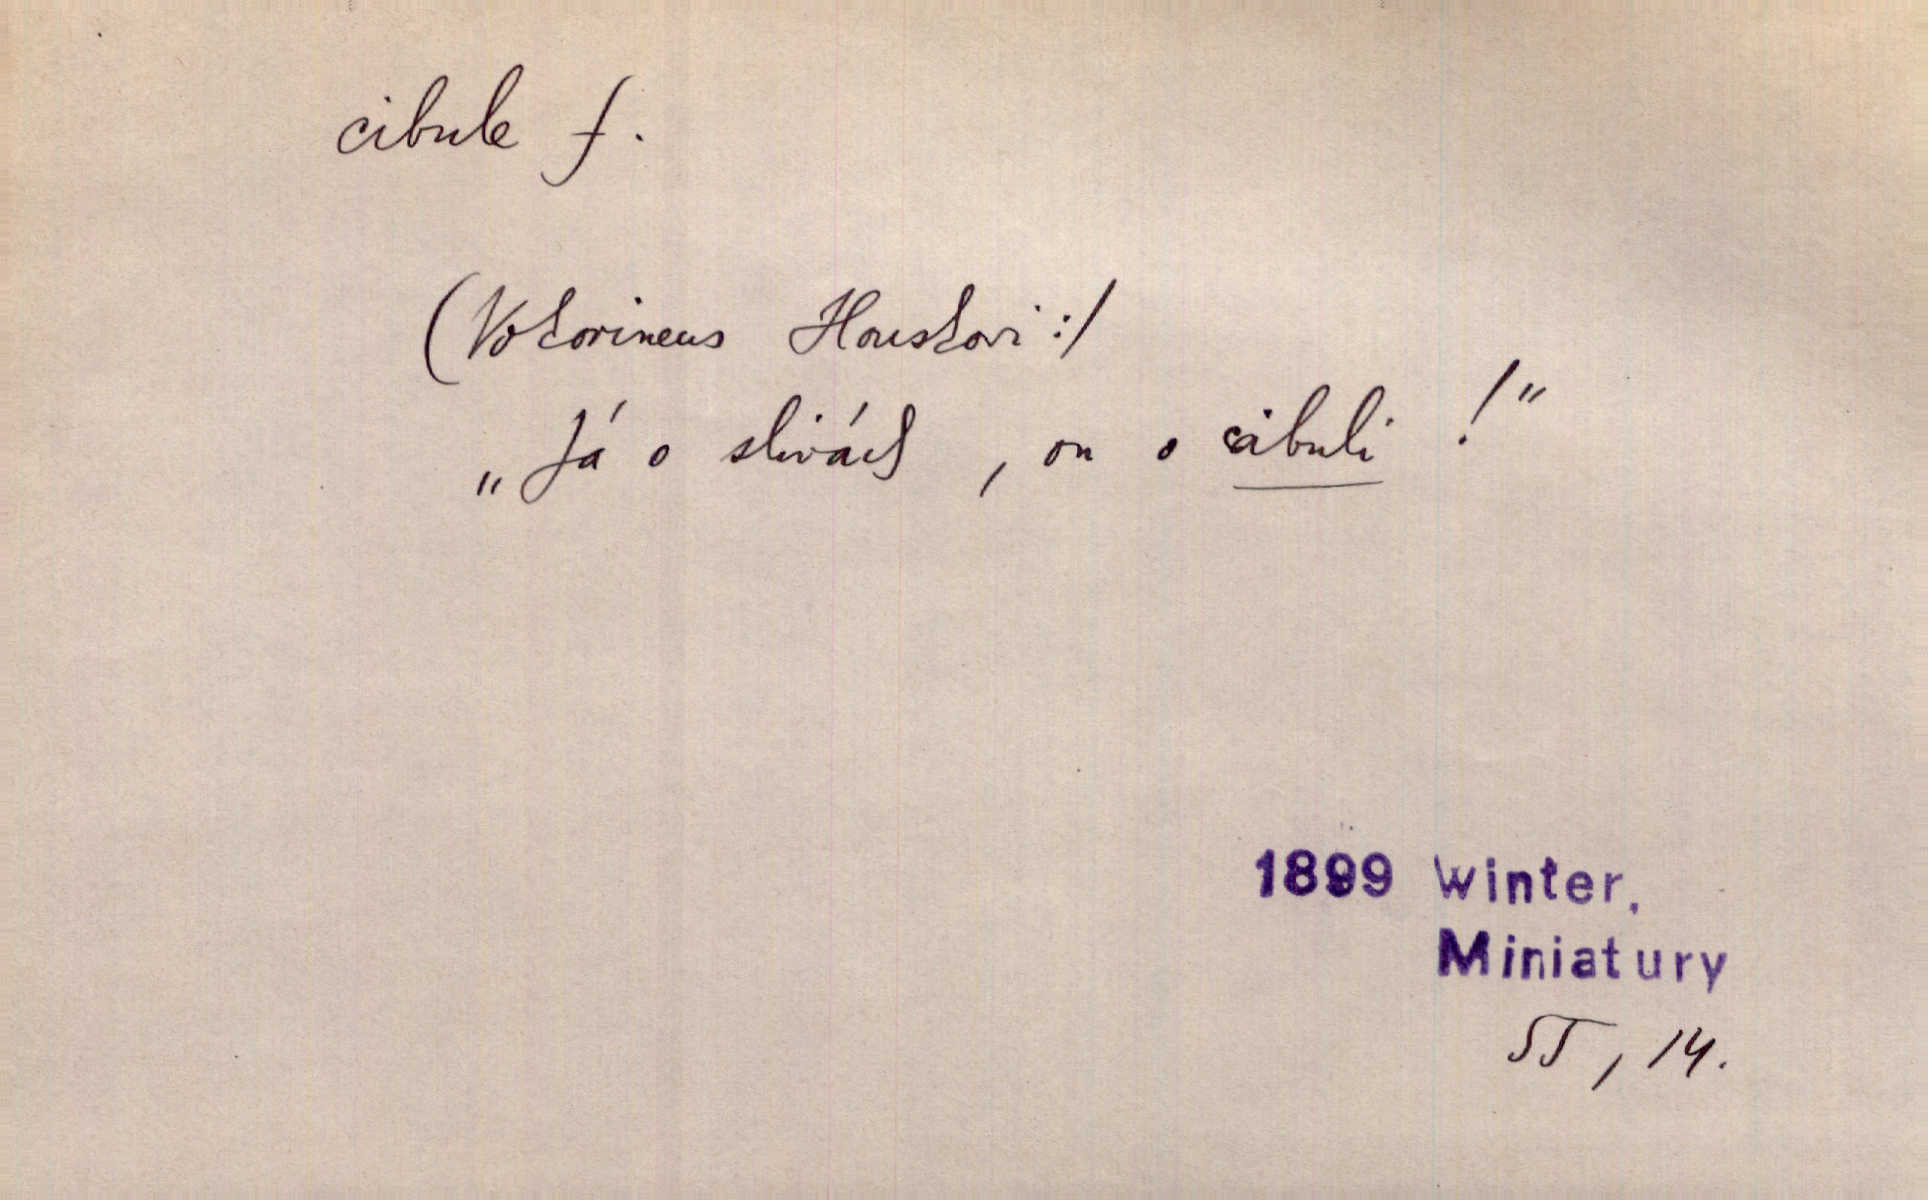 cibule f.
(Vokorineus Houskovi:/
„Já o slivách, on o cibuli!"
1899 Winter,
Miniatury
II, 14.